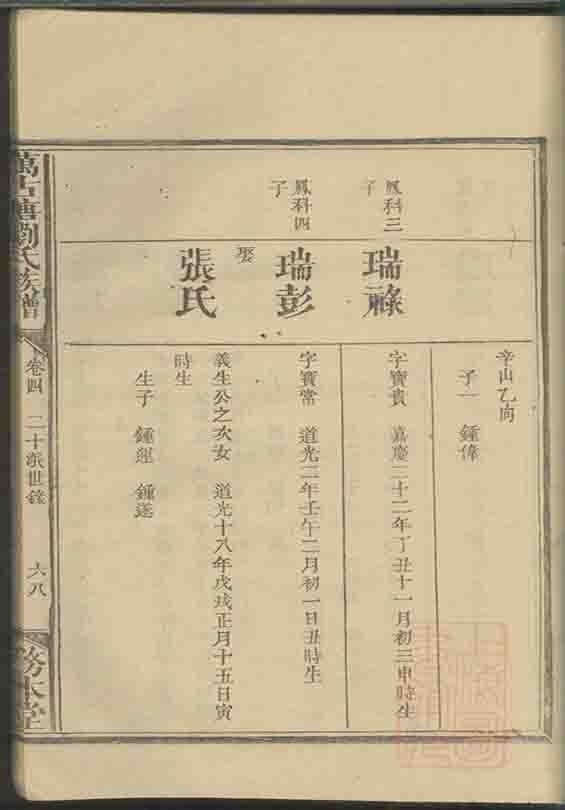 辛山乙向
子一 鍾偉
鳳科三
子
瑞祿
字寶貴 嘉慶二十二年丁丑十一月初三申時生
鳳科四
子
瑞彭
字寶常 道光二年壬午二月初一日丑時生
娶
張氏
義生公之次女 道光十八年戊戌正月十五日寅
時生
生子 鍾運 鍾遂
萬古塘劉氏族譜
卷四 二十派世錄
六八
務本堂